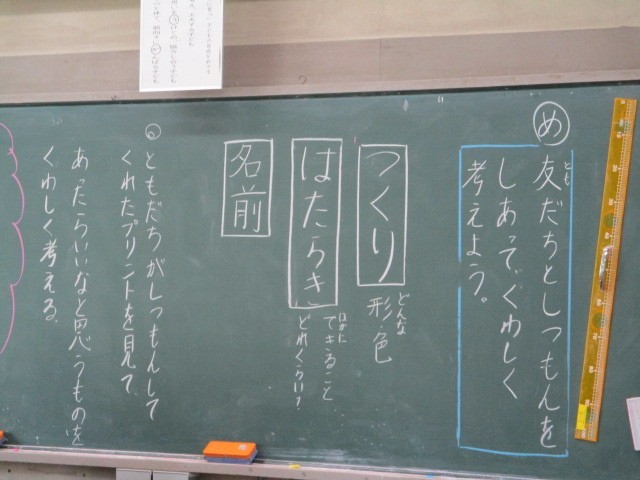 め
友だちとしつもんを
とも
しあって、くわしく
考えよう。
つくり
どんな
形・色
はたらき
ほかに
できること
どれくらい?
名前
ともだちがしつもんして
くれたプリントを見て
あったらいいなと思うものを
くわしく考える。